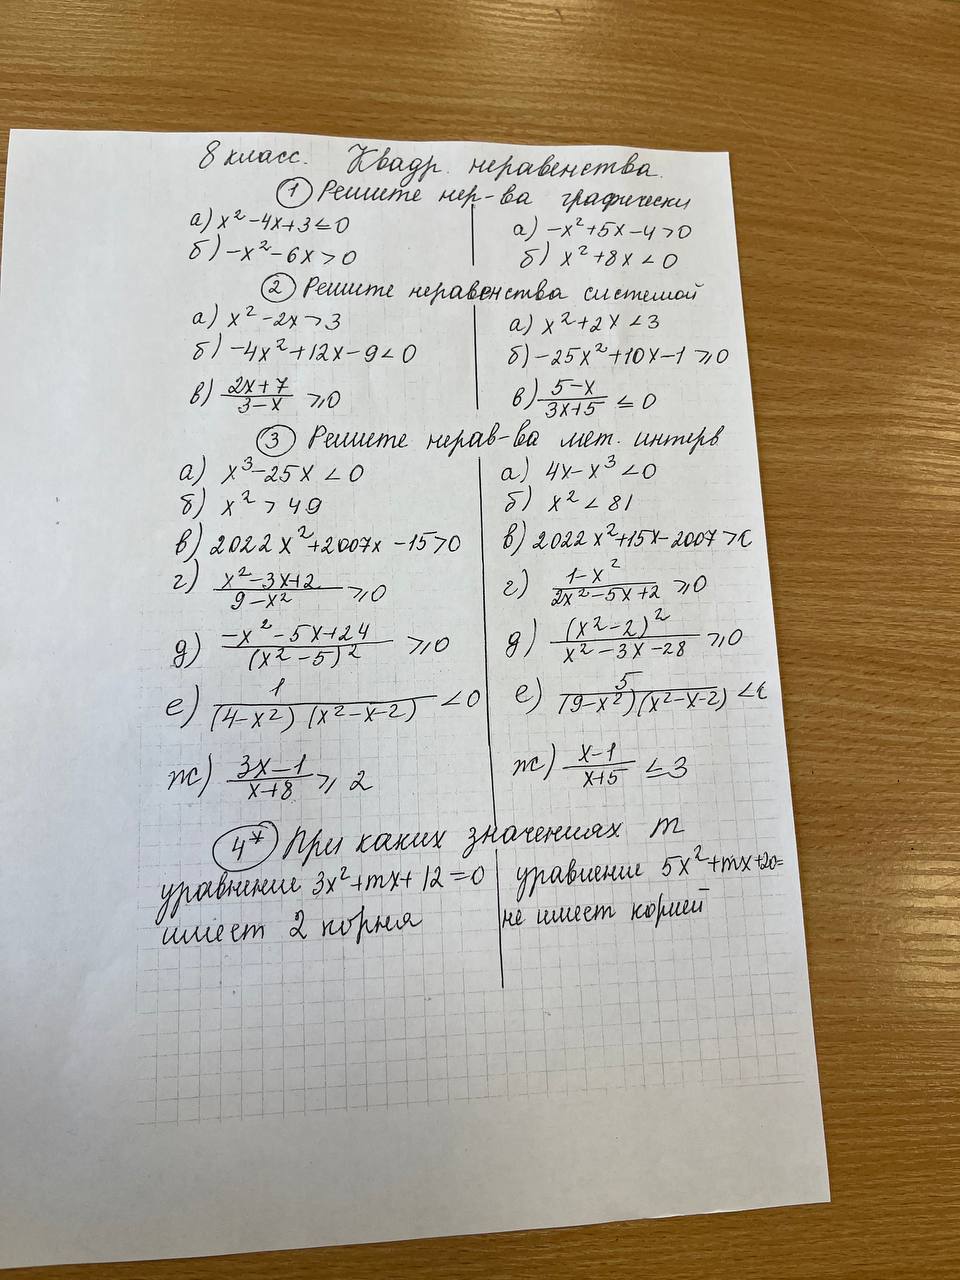 8 класс. Квадр. неравенства.
① Решите нер-ва графически
а) x²-4x+3≤0
б) -x²-6x>0
а) -x²+5x-4>0
б) x²+8x<0
② Решите неравенства системой
а) x²-2x>3
б) -4x²+12x-9<0
в) (2x+7)/(3-x) ≥0
а) x²+2x<3
б) -25x²+10x-1≥0
в) (5-x)/(3x+5) ≤0
③ Решите нерав-ва мет. интерв
а) x³-25x<0
б) x²>49
в) 2022x²+2007x-15>0
г) (x²-3x+2)/(9-x²) ≥0
д) (-x²-5x+24)/((x²-5)²) ≥0
е) 1/((4-x²)(x²-x-2)) <0
ж) (3x-1)/(x+8) ≥2
а) 4x-x³<0
б) x²<81
в) 2022x²+15x-2007>
г) (1-x²)/(2x²-5x+2) ≥0
д) ((x²-2)²)/(x²-3x-28) ≥0
е) 5/((9-x²)(x²-x-2)) <
ж) (x-1)/(x+5) ≤3
4* При каких значениях m
уравнение 3x²+mx+12=0
имеет 2 корня
уравнение 5x²+mx+20=
не имеет корней